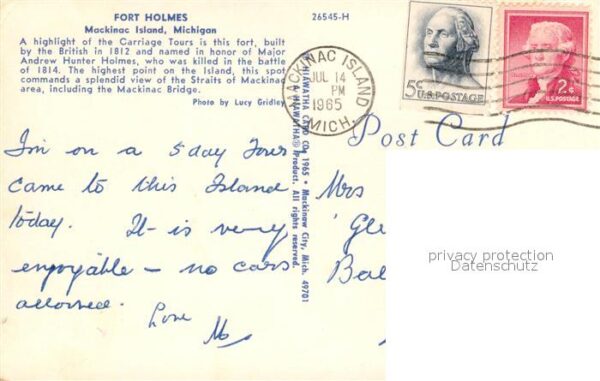 FORT HOLMES
Mackinac Island, Michigan
A highlight of the Carriage Tours is this fort, built
by the British in 1812 and named in honor of Major
Andrew Hunter Holmes, who was killed in the battle
of 1814. The highest point on the Island, this spot
commands a splendid view of the Straits of Mackinac
area, including the Mackinac Bridge.
Photo by Lucy Gridley
26545-H
MACKINAC ISLAND
JUL 14
PM
1965
MICH.
5¢
U.S. POSTAGE
2¢
U.S. POSTAGE
Post Card
HIAWATHA CARD CO. 1965 • Mackinaw City, Mich. 49701
A HIAWATHA® Product. All rights reserved.
I'm on a 5 day Tour
came to this Island
today. It is very
enjoyable - no cars
allowed.
Love
Mrs
Gle
Bal
privacy protection
Datenschutz